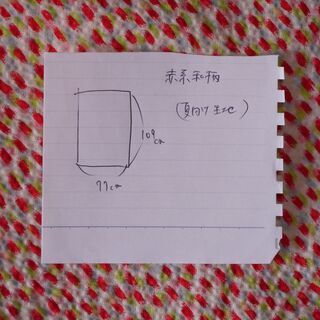 赤系和柄
(夏向け生地)
109cm
77cm